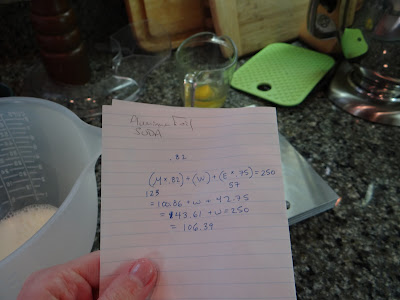 SODA
.82
(M * .82) + (W) + (E * .75) = 250
123 57
= 100.86 + W + 42.75
= 143.61 + W = 250
= 106.39